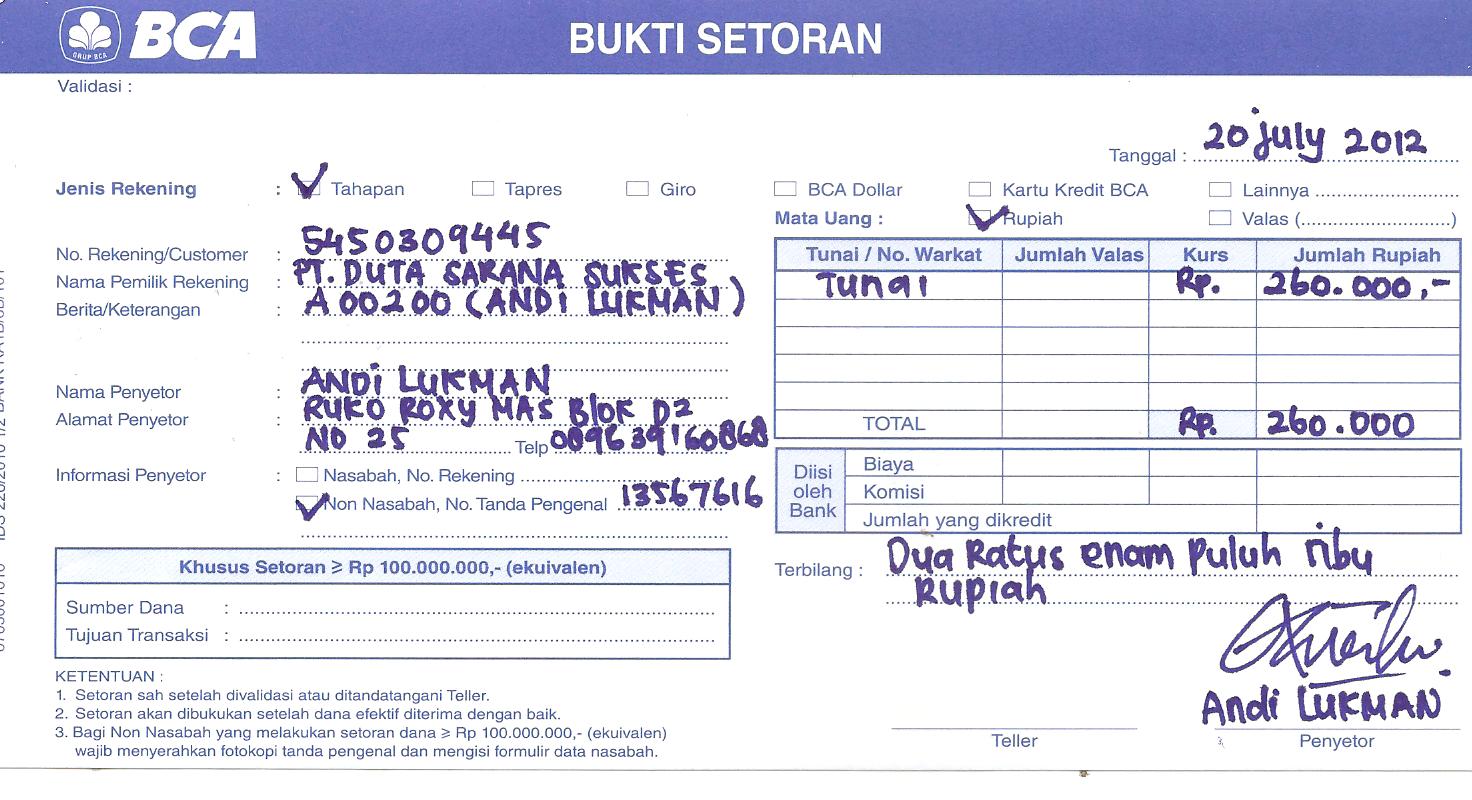 GRUP BCA
BCA BUKTI SETORAN
Validasi :
Tanggal : 20 july 2012
Jenis Rekening : Tahapan Tapres Giro BCA Dollar Kartu Kredit BCA Lainnya
Mata Uang : Rupiah Valas (....................)
No. Rekening/Customer : 5450309445
Nama Pemilik Rekening : PT. DUTA SARANA SUKSES
Berita/Keterangan : A 00200 (ANDI LUKMAN)
Tunai / No. Warkat Jumlah Valas Kurs Jumlah Rupiah
Tunai Rp. 260.000,-
TOTAL Rp. 260.000
Nama Penyetor : ANDI LUKMAN
Alamat Penyetor : RUKO ROXY MAS Blok D2
NO 25 Telp
Informasi Penyetor : Nasabah, No. Rekening
Non Nasabah, No. Tanda Pengenal 13567616
Diisi oleh Bank
Biaya
Komisi
Jumlah yang dikredit
Terbilang : Dua Ratus enam Puluh ribu
Rupiah
Khusus Setoran ≥ Rp 100.000.000,- (ekuivalen)
Sumber Dana :
Tujuan Transaksi :
KETENTUAN :
1. Setoran sah setelah divalidasi atau ditandatangani Teller.
2. Setoran akan dibukukan setelah dana efektif diterima dengan baik.
3. Bagi Non Nasabah yang melakukan setoran dana ≥ Rp 100.000.000,- (ekuivalen)
wajib menyerahkan fotokopi tanda pengenal dan mengisi formulir data nasabah.
Andi LUKMAN
Teller Penyetor